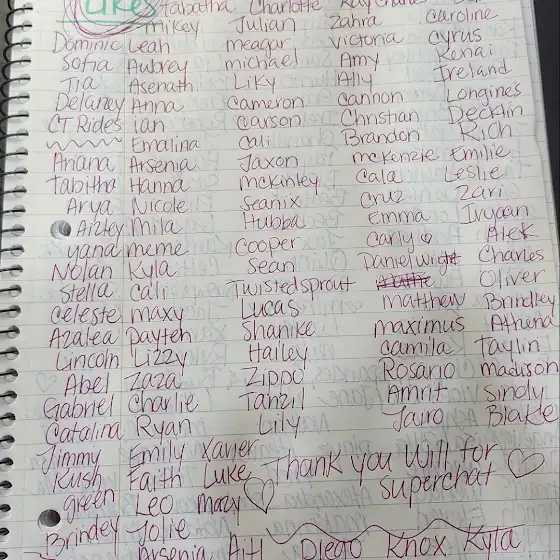 Likes Tabatha Charlotte
mikey Julian Zahra Caroline
Dominic Leah meagan victoria cyrus
Sofia Aubrey michael Amy Kenai
Tia Asenath Liky Ally Ireland
Delaney Anna Cameron cannon Longines
CT Rides ian Carson Christian Decklin
Emalina Cali Brandon Rich
Ariana Arsenia Jaxon mckenzie Emilie
Tabitha Hanna mckinley Cala Leslie
Arya Nicole Seanix Cruz Zari
Aizley Mila Hubba Emma
yana meme cooper Carly Alek
Nolan Kyla Sean Daniel Wight Charles
Stella cali Twistedsprout Oliver
celeste maxy Lucas matthew Brindley
Azalea Dayten Shanike maximus Athena
Lincoln Lizzy Hailey camila Taylin
Abel Zaza Zippo Rosario madison
Gabriel Charlie Tanzil Amrit Sindy
Catalina Ryan Lily Jairo Blake
Jimmy Emily Xavier
Kush Faith Luke Thank you Will for
green Leo Mazy superchat
Brindey Jolie
Arsenia Diego Knox Kyla